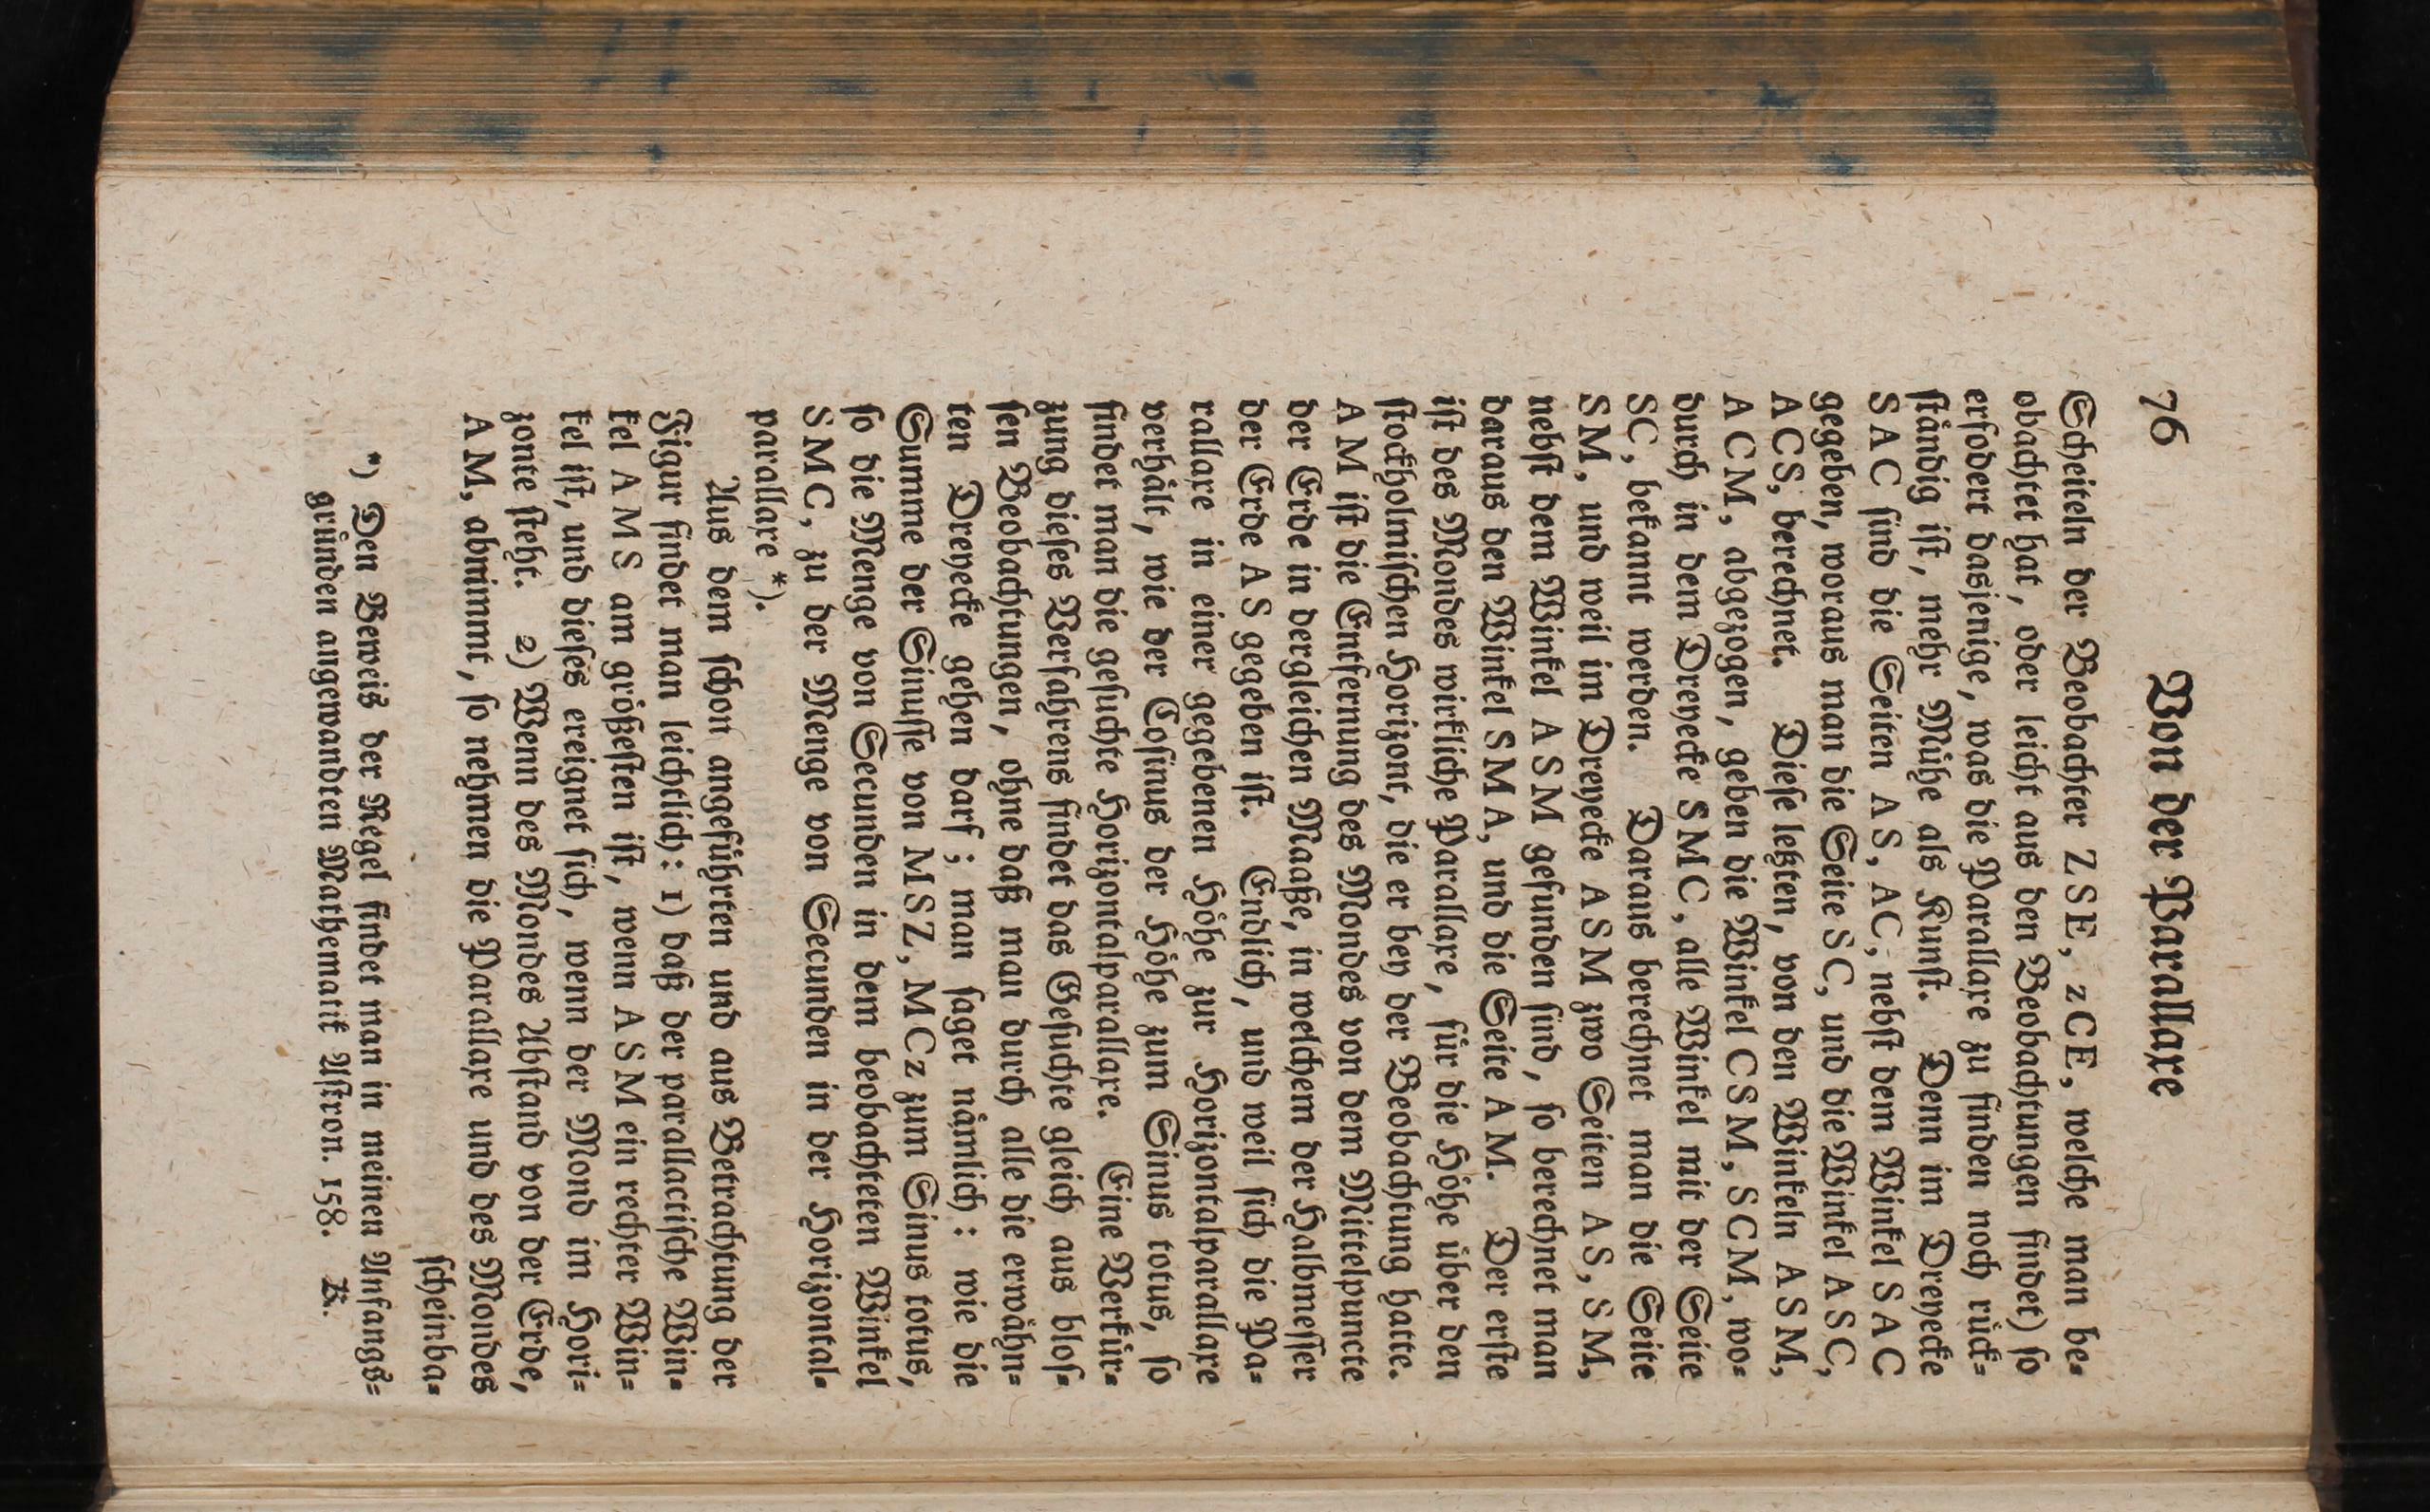 76 Von der Parallaxe
Scheiteln der Beobachter ZSE, zCE, welche man be-
obachtet hat, oder leicht aus den Beobachtungen findet) so
erfodert dasjenige, was die Parallaxe zu finden noch rück-
ständig ist, mehr Mühe als Kunst. Denn im Dreyecke
SAC sind die Seiten AS, AC, nebst dem Winkel SAC
gegeben, woraus man die Seite SC, und die Winkel ASC,
ACS, berechnet. Diese letzten, von den Winkeln ASM,
ACM, abgezogen, geben die Winkel CSM, SCM, wo-
durch in dem Dreyecke SMC, alle Winkel mit der Seite
SC, bekannt werden. Daraus berechnet man die Seite
SM, und weil im Dreyecke ASM zwo Seiten AS, SM,
nebst dem Winkel ASM gefunden sind, so berechnet man
daraus den Winkel SMA, und die Seite AM. Der erste
ist des Mondes wirkliche Parallaxe, für die Höhe über den
stockholmischen Horizont, die er bey der Beobachtung hatte.
AM ist die Entfernung des Mondes von dem Mittelpuncte
der Erde in dergleichen Maaße, in welchem der Halbmesser
der Erde AS gegeben ist. Endlich, und weil sich die Pa-
rallaxe in einer gegebenen Höhe zur Horizontalparallaxe
verhält, wie der Cosinus der Höhe zum Sinus totus, so
findet man die gesuchte Horizontalparallaxe. Eine Verkür-
zung dieses Verfahrens findet das Gesuchte gleich aus blos-
sen Beobachtungen, ohne daß man durch alle die erwähn-
ten Dreyecke gehen darf; man saget nämlich: wie die
Summe der Sinusse von MSZ, MCz zum Sinus totus,
so die Menge von Secunden in dem beobachteten Winkel
SMC, zu der Menge von Secunden in der Horizontal-
parallaxe *).
Aus dem schon angeführten und aus Betrachtung der
Figur findet man leichtlich: 1) daß der parallactische Win-
kel AMS am größesten ist, wenn ASM ein rechter Win-
kel ist, und dieses ereignet sich, wenn der Mond im Hori-
zonte steht. 2) Wenn des Mondes Abstand von der Erde,
AM, abnimmt, so nehmen die Parallaxe und des Mondes
scheinba-
*) Den Beweis der Regel findet man in meinen Anfangs-
gründen angewandten Mathematik Astron. 158. K.